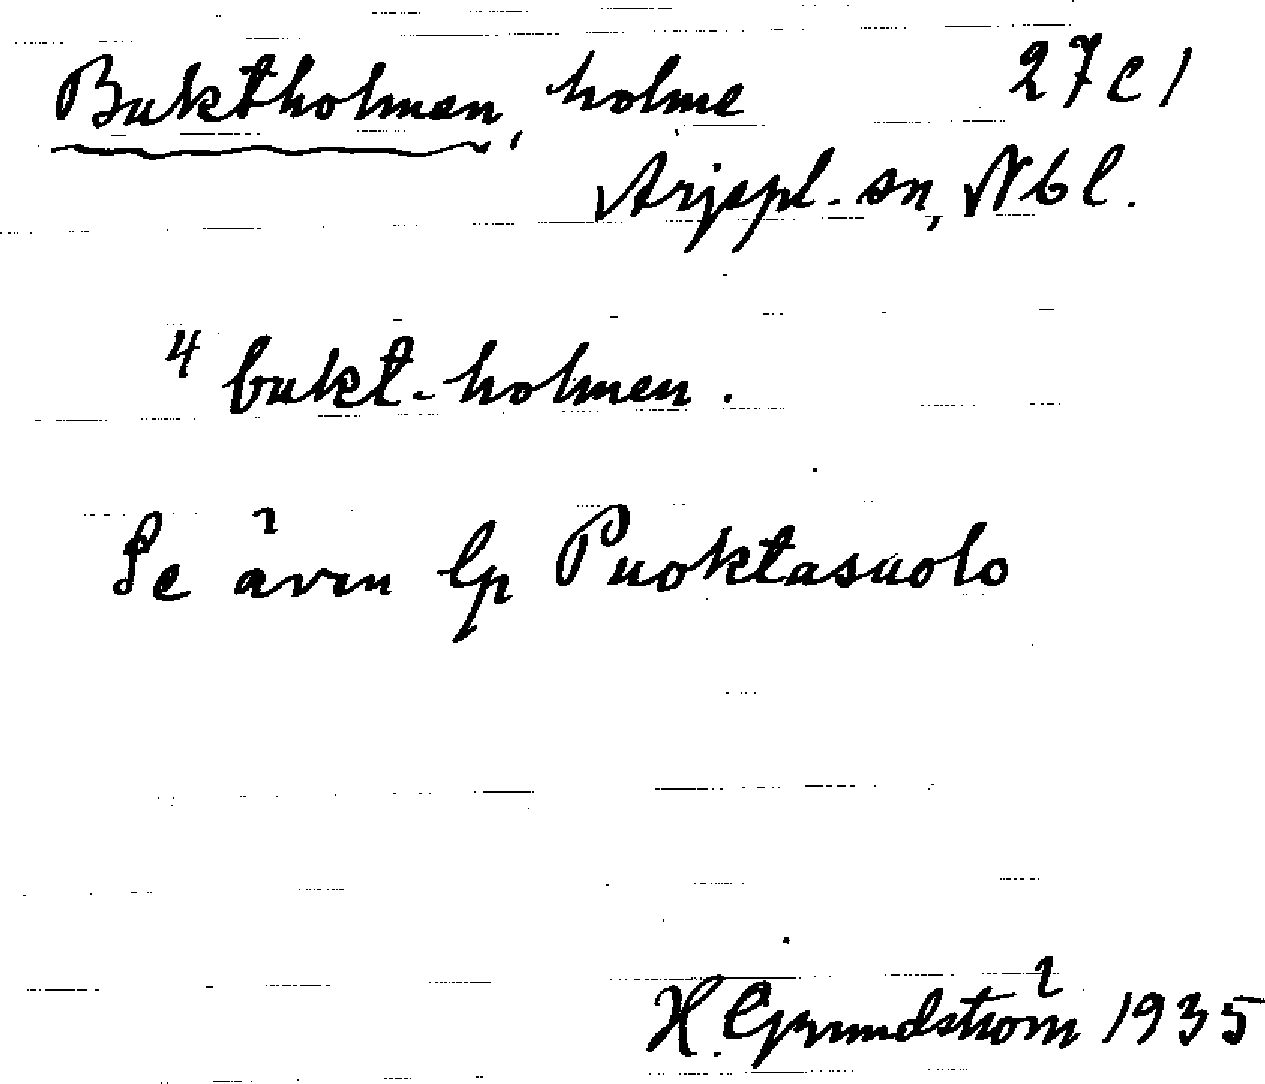 Buktholmen, holme 27 C 1
Arjepl. sn, Nbl.
4 bukt-holmen.
Se även lp Puoktasuolo
H. Grundström 1935